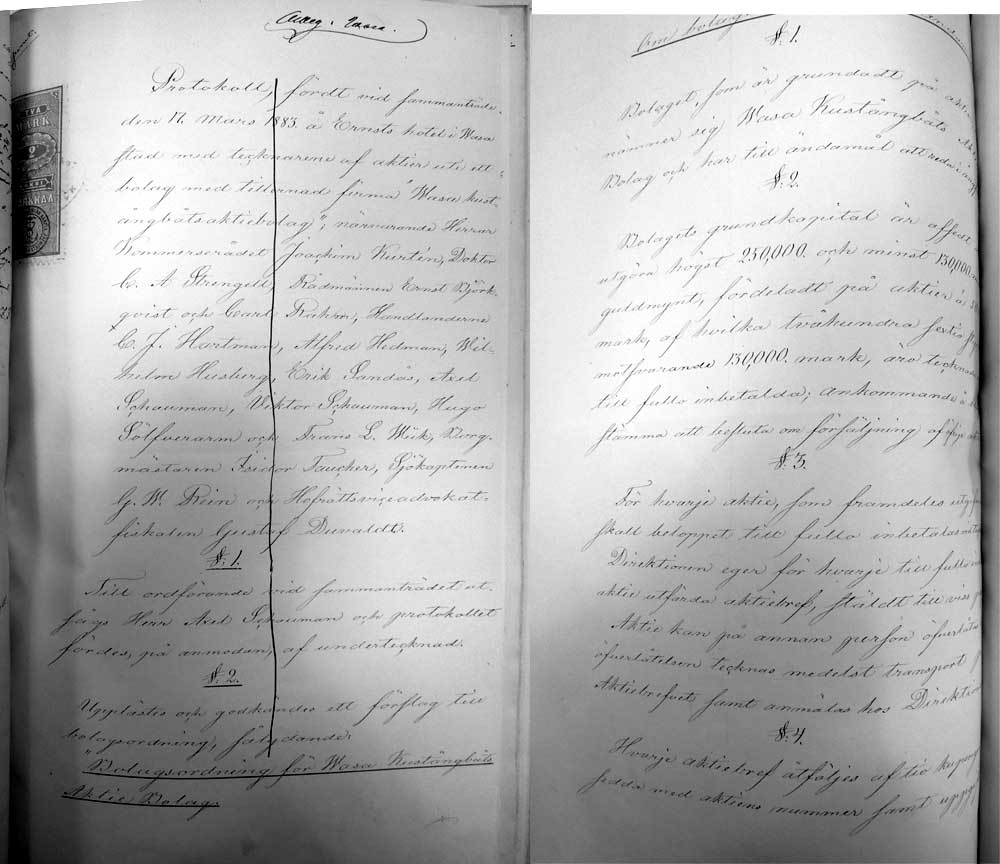 TVÅ
MARK
2
Protokoll, fördt vid sammanträde
den 17. Mars 1883. å Ernsts hotel i Wasa
stad med tecknarene af aktier uti ett
bolag med tillernad firma "Wasa kust-
ångbåtsaktiebolag"; närvarande Herrar
Kommerserådet Joachim Kurtén, Doktor
C. A. Strengell, Rådmännen Ernst Björk-
qvist och Carl Rahm, Handlanderne
C. J. Hartman, Alfred Hedman, Wil-
helm Husberg, Erik Sandås, Axel
Schauman, Viktor Schauman, Hugo
Sölfverarm och Frans L. Wiik, Borg-
mästaren Isidor Taucher, Sjökaptenen
G. W. Rein och Hofrättsviceadvokat-
fiskalen Gustaf Duvaldt.
§. 1.
Till ordförande vid sammanträdet ut-
sågs Herr Axel Schauman och protokollet
fördes, på anmodan, af undertecknad.
§. 2.
Upplästes och godkändes ett förslag till
bolagsordning, sålydande:
"Bolagsordning för Wasa Kustångbåts
Aktie Bolag.
Om bolag
§. 1.
Bolaget, som är grundadt på
nämner sig Wasa Kustångbåts
Bolag och har till ändamål att reda
§. 2.
Bolagets grundkapital är afsedt
utgöra högst 250,000. och minst 130,000
guldmynt, fördeladt på aktier å
mark, af hvilka tvåhundra sextio
motsvarande 130,000. mark, äro tecknade
till fullo inbetalda; ankommande å
stämma att besluta om försäljning af
§. 3.
För hvarje aktie, som framdeles
skall beloppet till fullo inbetalas
Direktionen eger för hvarje till fullo
aktie utfärda aktiebref, stäldt till viss
Aktie kan på annan person öfverlåtas
öfverlåtelsen tecknas medelst transport
Aktiebrefvet samt anmälas hos Direktio
§. 4.
Hvarje aktiebref åtföljes af tio kupong
sedda med aktiens nummer samt